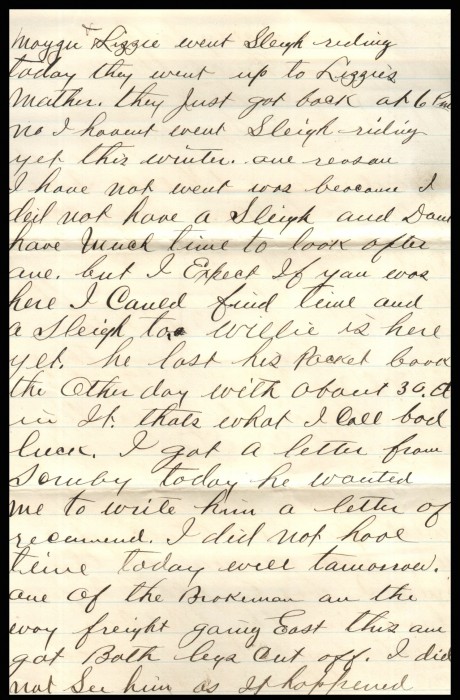 Maggie & Lizzie went Sleigh riding
today they went up to Lizzies
Mother. they Just got back at 6 Pm
no I havent went Sleigh riding
yet this winter. one reason
I have not went was because I
did not have a Sleigh and Dont
have Much time to look after
one. but I Expect If you was
here I Could find time and
a Sleigh to. Willie is here
yet. he lost his Pocket book
the Other day with about 30.
in It. thats what I Call bad
luck. I got a letter from
today he wanted
me to write him a letter of
recomend. I did not have
time today will tomorrow.
one of the Brakeman on the
way freight going East this am
got Both legs cut off. I did
not See him as it happened